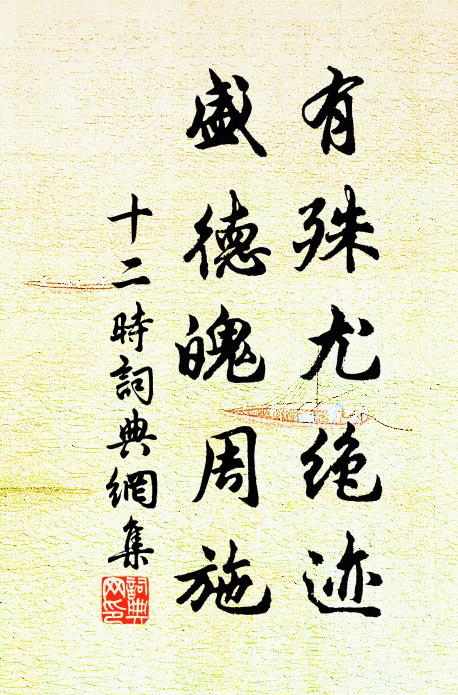 有殊尤绝迹
盛德巍周施
十二時詞典網集
詞典